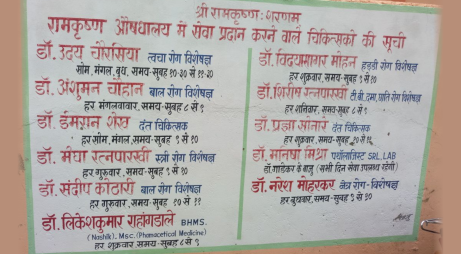 श्री रामकृष्ण: शरणम
रामकृष्ण औषधालय में सेवा प्रदान करने वाले चिकित्सकों की सूची
डॉ. उदय चौरसिया त्वचा रोग विशेषज्ञ
सोम, मंगल, बुध, समय-सुबह १०-३० से ११-३०
डॉ. अंशुमन चौहान बाल रोग विशेषज्ञ
हर मंगलवावार, समय-सुबह ८ से ९
डॉ. इमरान शेख दंत चिकित्सक
हर सोम, मंगल, समय-सुबह ९ से १०
डॉ. मेघा रत्नपारखी स्त्री रोग विशेषज्ञ
हर गुरुवार, समय-सुबह ९ से १०
डॉ. संदीप कोठारी बाल रोग विशेषज्ञ
हर गुरुवार, समय-सुबह १० से ११
डॉ. लिकेशकुमार राहांगडाले BHMS.
(Nashik). Msc. (Phamacetical Medicine)
हर शुक्रवार, समय-सुबह ८ से ९
डॉ. विद्यासागर मोहन हड्डी रोग विशेषज्ञ
हर शुक्रवार, समय-सुबह ९ से १०
डॉ. शिरीष रत्नपारखी टी.बी. दमा, छाति रोग विशेषज्ञ
हर शनिवार, समय-सुबह ८ से ९
डॉ. प्रज्ञा दंत चिकित्सक
हर शुक्रवार, समय-सुबह से
डॉ. मानषा मिश्रा पैथॉलाजिस्ट SRL. LAB
डॉ. गाडेकर के बाजु (सभी दिन सेवा उपलब्ध रहेगी)
डॉ. नरेश मोहरकर नेत्र रोग-विशेषज्ञ
हर बुधवार, समय-सुबह ९ से १०